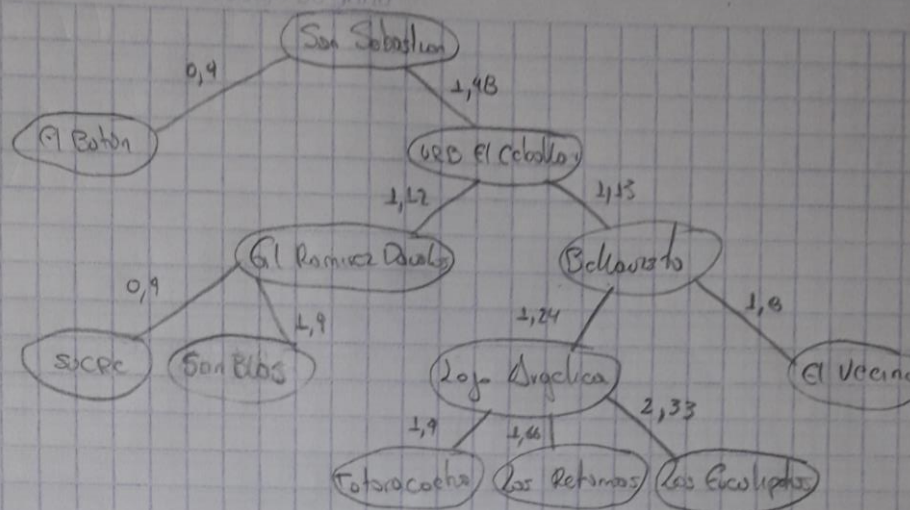 San Sebastian
0,9
1,48
El Batán
URB El Cebollar
1,12
1,13
Gil Ramirez Davalos
Bellavista
0,9
1,9
1,24
1,8
sucre
San Blas
Angelica
El Vecino
2,33
1,9
1,66
Totoracocha
Las Retamas
Los Eucaliptos